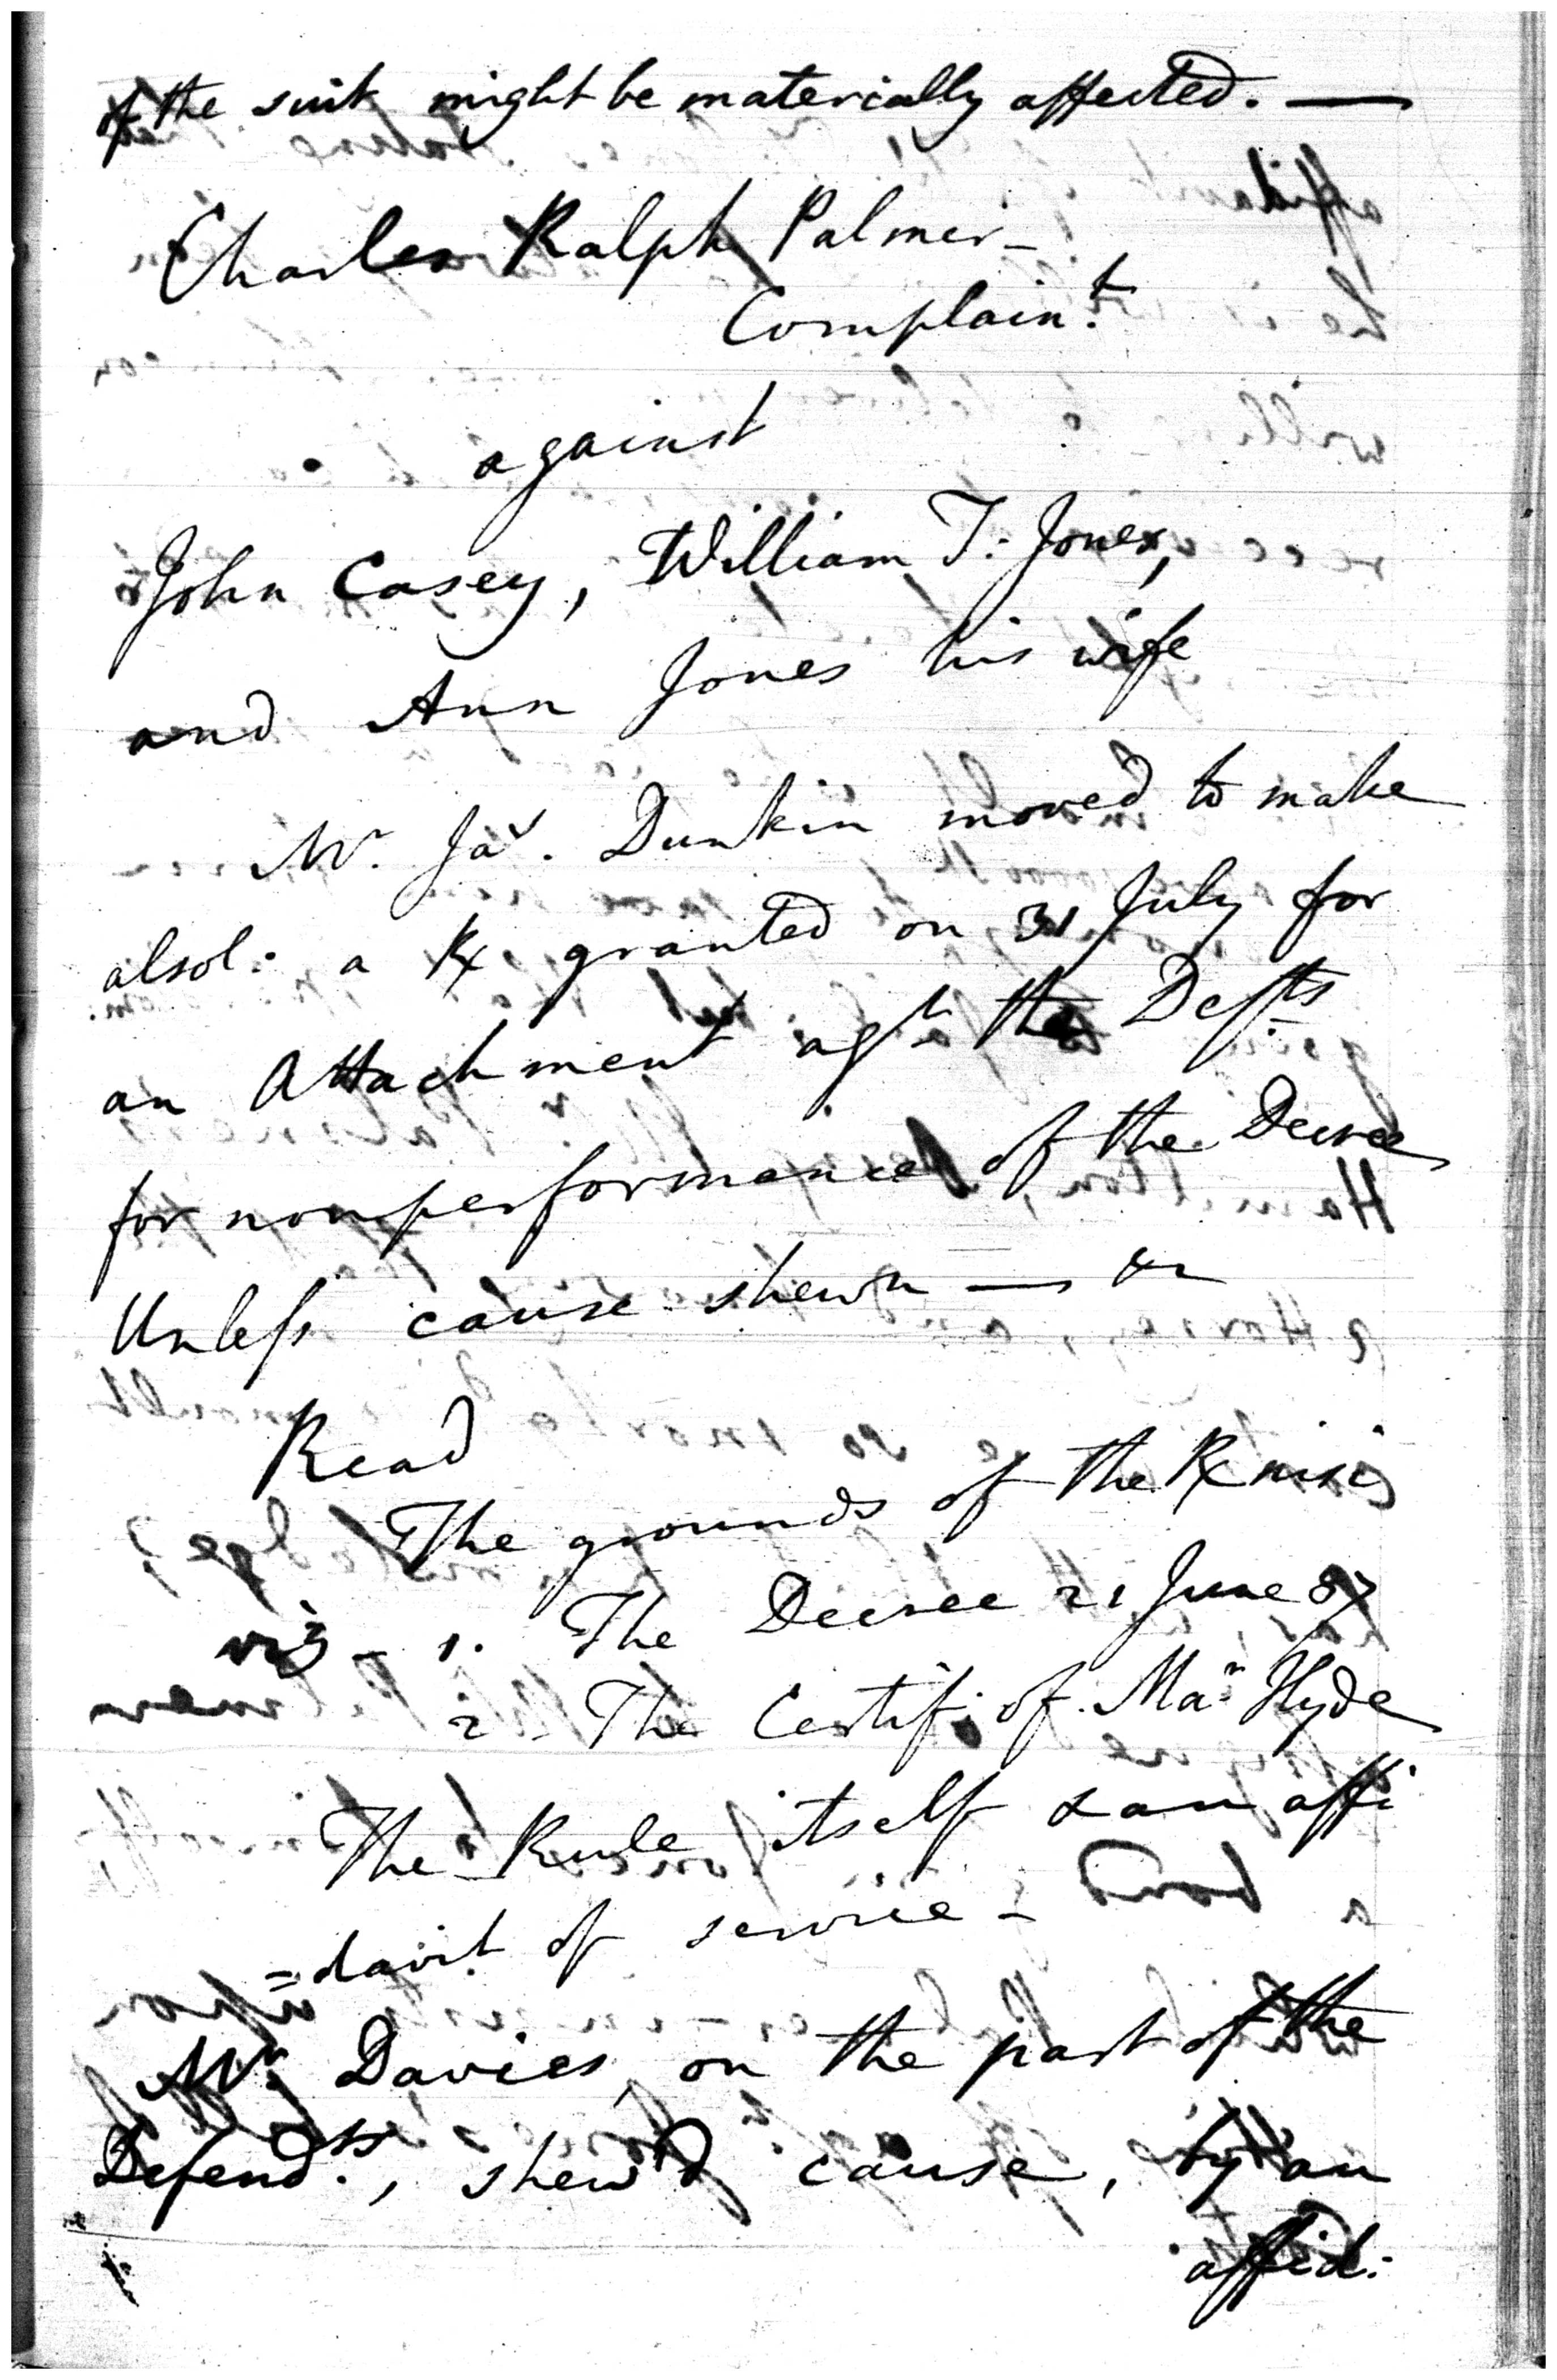 of the suit might be materially affected. —
Charles Ralph Palmer –
Complain.t
against
John Casey, William T: Jones,
and Ann Jones his wife
Mr. Jas. Dunkin moved to make
absol: a R granted on 31 July for
an Attachment agt the Defts
for nonperformance of the Decree
Unless cause shewn — &c
Read
The grounds of the R nisi
viz – 1. The Decree 21 June 87
2 – The Certif: of Mar Hyde
The Rule itself & an affi
=davit of service –
Mr. Davies, on the part of the
Defend.ts, shew'd cause, by an
affid: